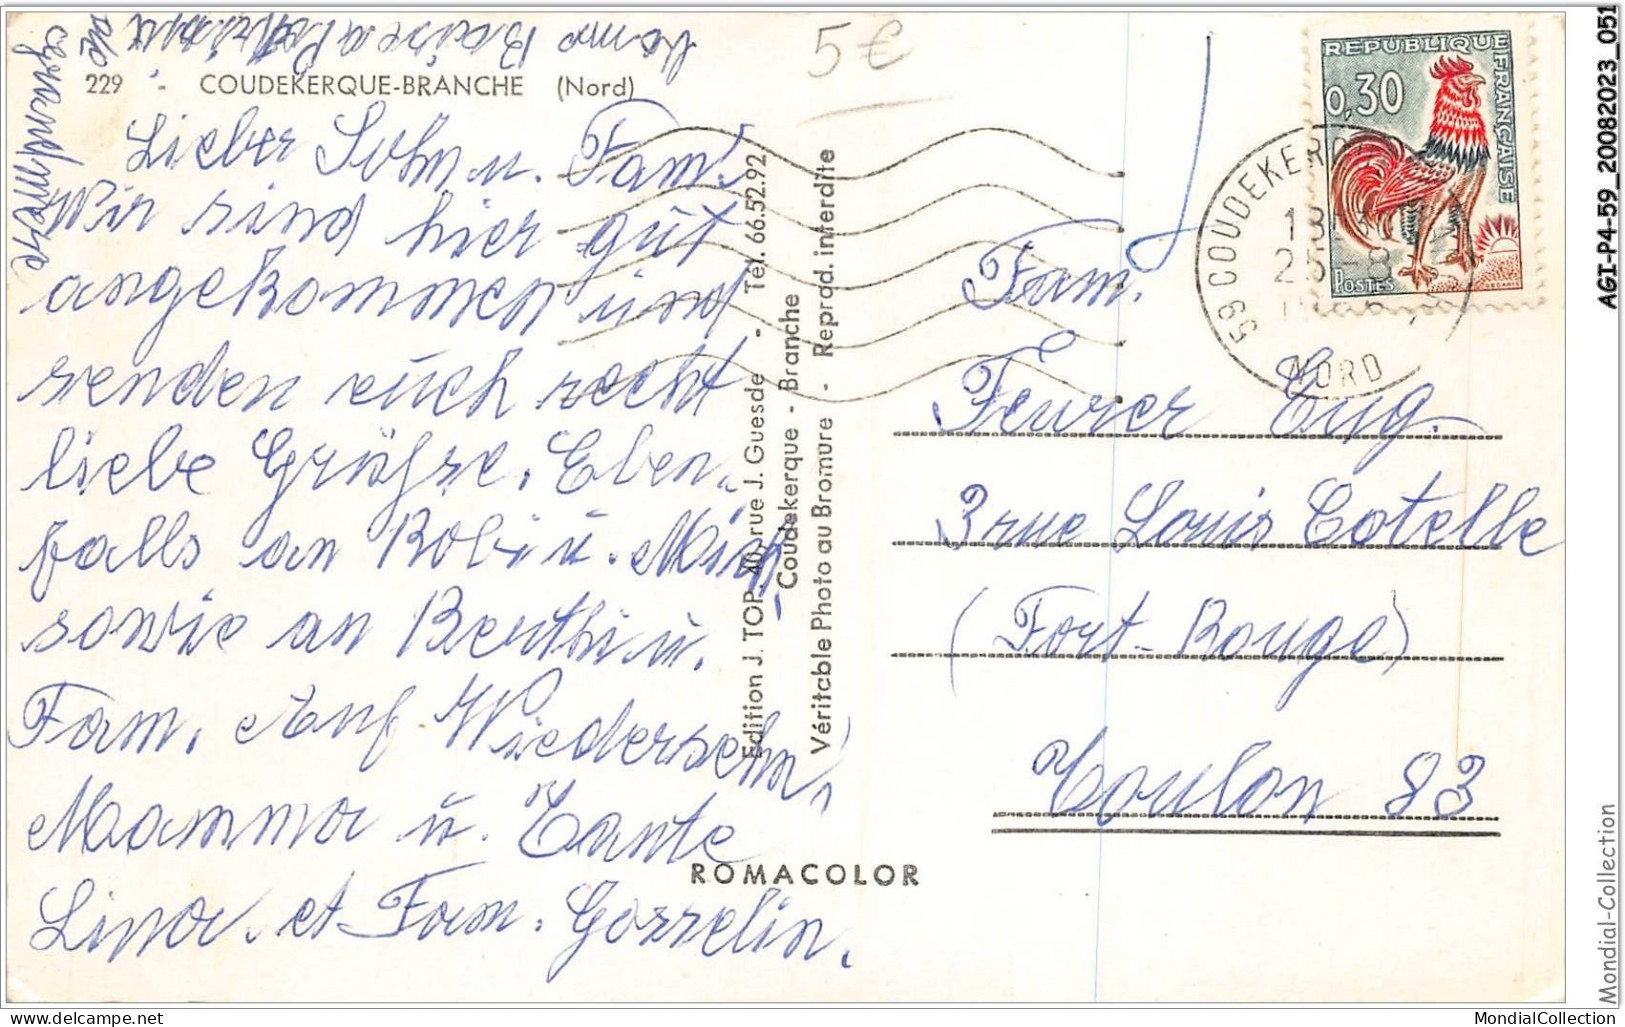 229 - COUDEKERQUE-BRANCHE (Nord)
5€
Lieber Sohn u. Fam.
Wir sind hier gut
angekommen und
senden euch recht
liebe Grüsse. Eben-
falls an Robi u. Mich.
sowie an Berthi u.
Fam. Auf Wiedersehn,
Mamma u. Tante
Lina. et Fam. Gosselin.
grandmere
Edition J. TOP. 40, rue J. Guesde - Tél. 66.52.92
Coudekerque - Branche
Véritable Photo au Bromure - Reprod. interdite
ROMACOLOR
REPUBLIQUE FRANÇAISE
0,30
POSTES
59 COUDEKERQUE
25-8
NORD
Fam.
Feurer Eug.
3 rue Louis Cotelle
(Fort-Rouge)
Toulon 83
AGI-P4-59_20082023_051
Mondial-Collection
MondialCollection